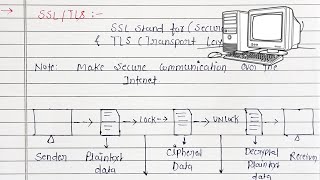 → SSL/TLS :-
SSL stand for (Secure
& TLS (Transport
Note: Make Secure Communication over the
Internet
Lock UNLock
Sender Plaintext data Ciphered Data Decrypted Plaintext data Receiver